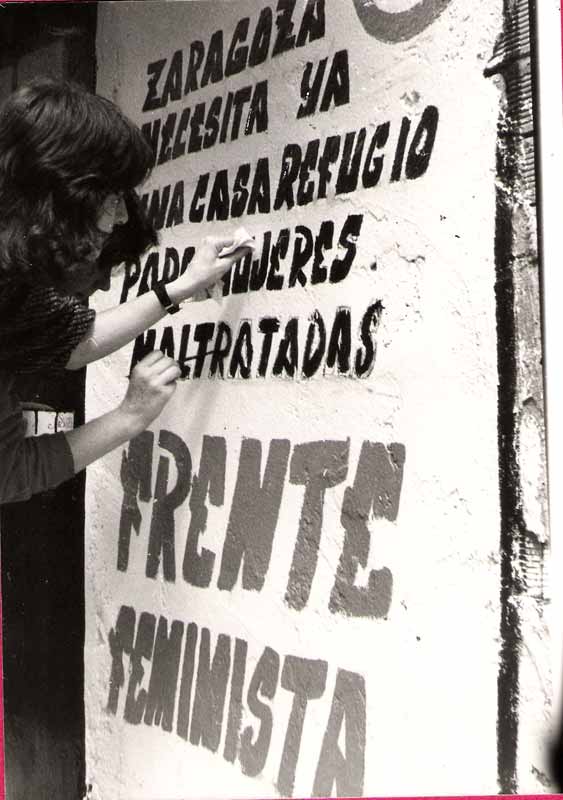 ZARAGOZA
NECESITA YA
UNA CASA REFUGIO
PARA MUJERES
MALTRATADAS
FRENTE
FEMINISTA